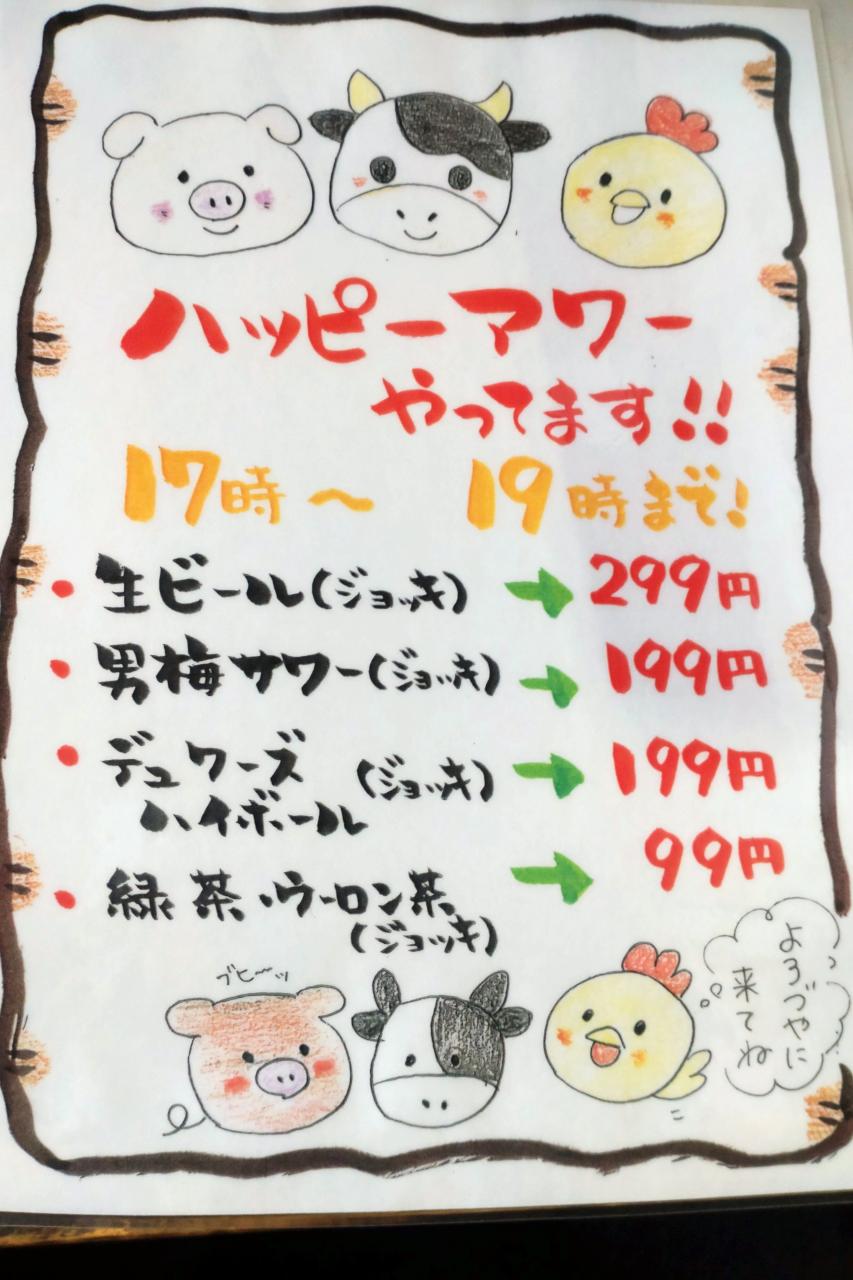 ハッピーアワー
やってます!!
17時～ 19時まで!
・生ビール(ジョッキ) → 299円
・男梅サワー(ジョッキ) → 199円
・デュワーズ (ジョッキ) → 199円
ハイボール
・緑茶・ウーロン茶 → 99円
(ジョッキ)
ブヒーッ
よろづやに
来てね